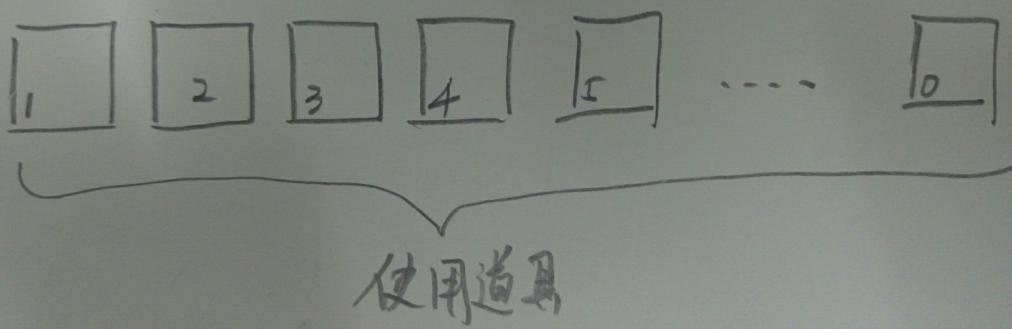 1 2 3 4 5 .... 0
使用道具